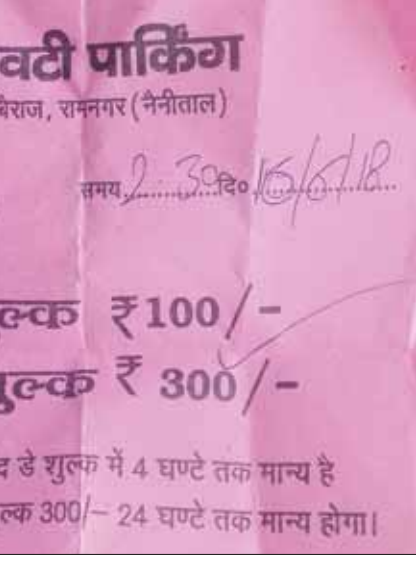 वटी पार्किंग
बैराज, रामनगर (नैनीताल)
समय 2.30 दि०
ल्क ₹ 100/-
ुल्क ₹ 300/-
डे शुल्क में 4 घण्टे तक मान्य है
ल्क 300/- 24 घण्टे तक मान्य होगा।